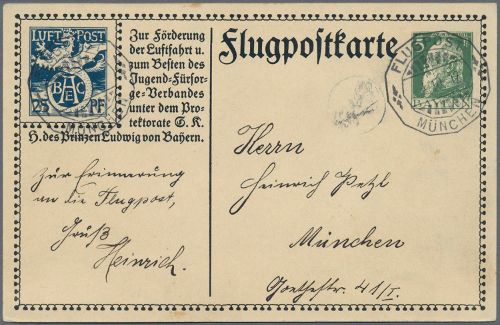 LUFT POST
BAEC
25 PF
Zur Förderung
der Luftfahrt u.
zum Besten des
Jugend-Fürsor-
ge-Verbandes
unter dem Pro-
tektorate S. K.
H. des Prinzen Ludwig von Bayern.
Flugpostkarte
5
BAYERN
FLU
MÜNCHEN
Zur Erinnerung
an die Flugpost,
Gruß
Heinrich.
Herrn
Heinrich Petzl
München
Goethestr. 41/I.